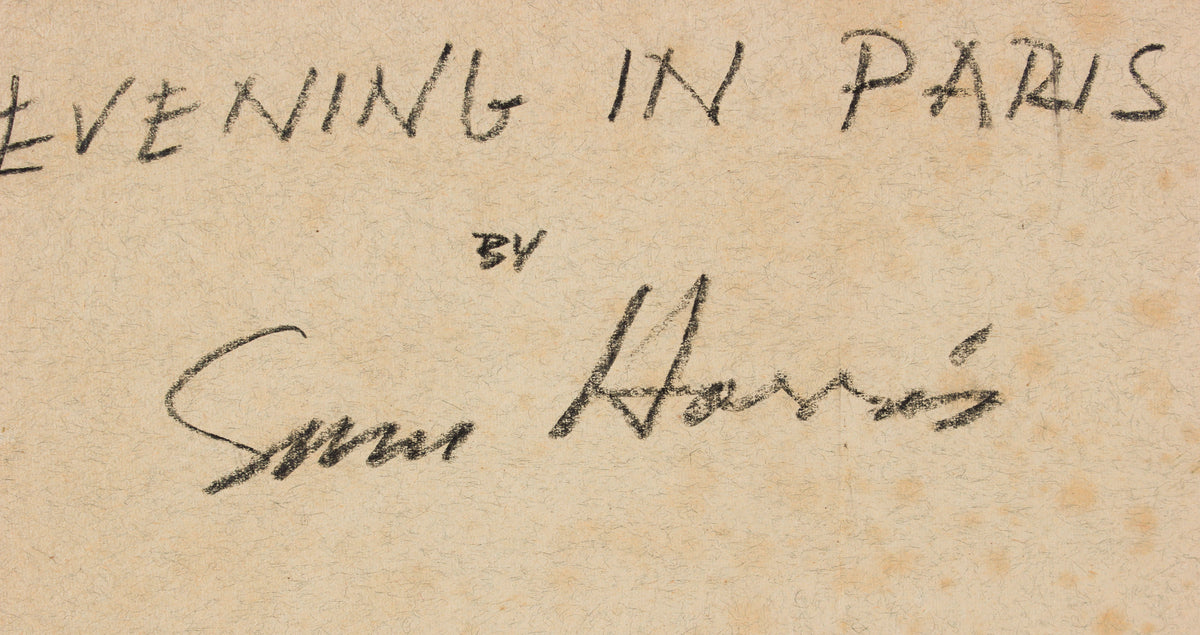 EVENING IN PARIS
BY
Harris